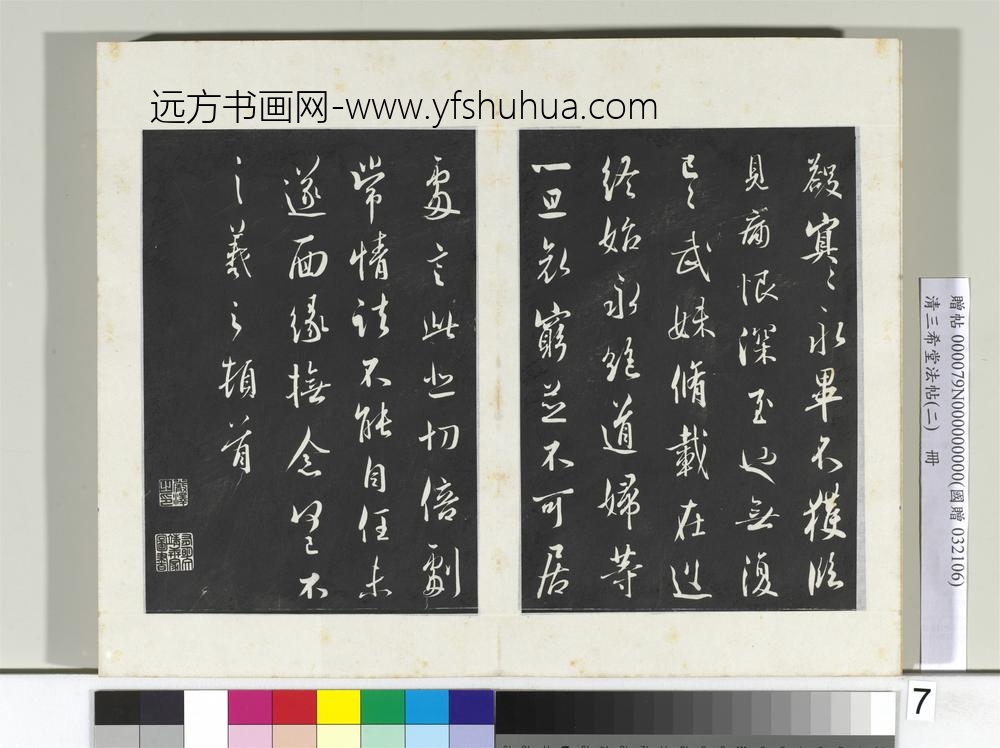 远方书画网-www.yfshuhua.com
永畢不獲臨
見痛恨深至也無復
已〻武妹脩載在遠
終始永絕道婦等
一旦哀窮並不可居
處言此悲切倍劇
常情諸不能自任未
遂面緣撫念何已不
羲之頓首
贈帖 000079N000000000(國贈 032106)
清三希堂法帖(二) 冊
7